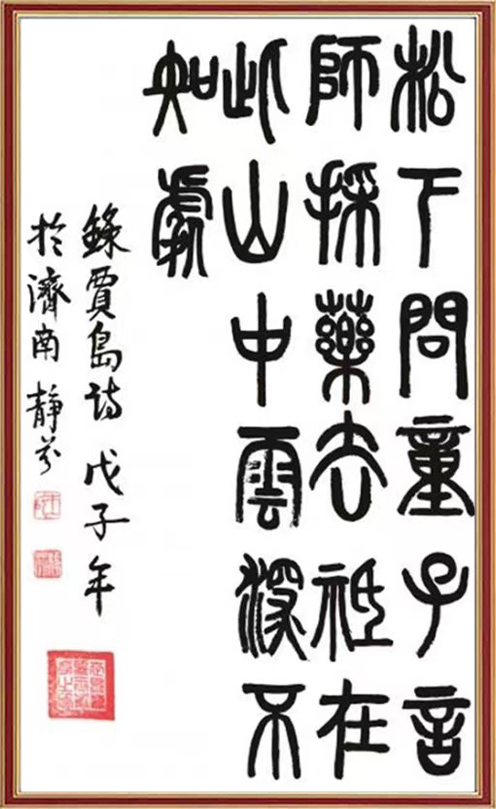 松下問童子言
師採藥去祗在
此山中雲深不
知處
錄賈島詩 戊子年
於濟南 靜芬